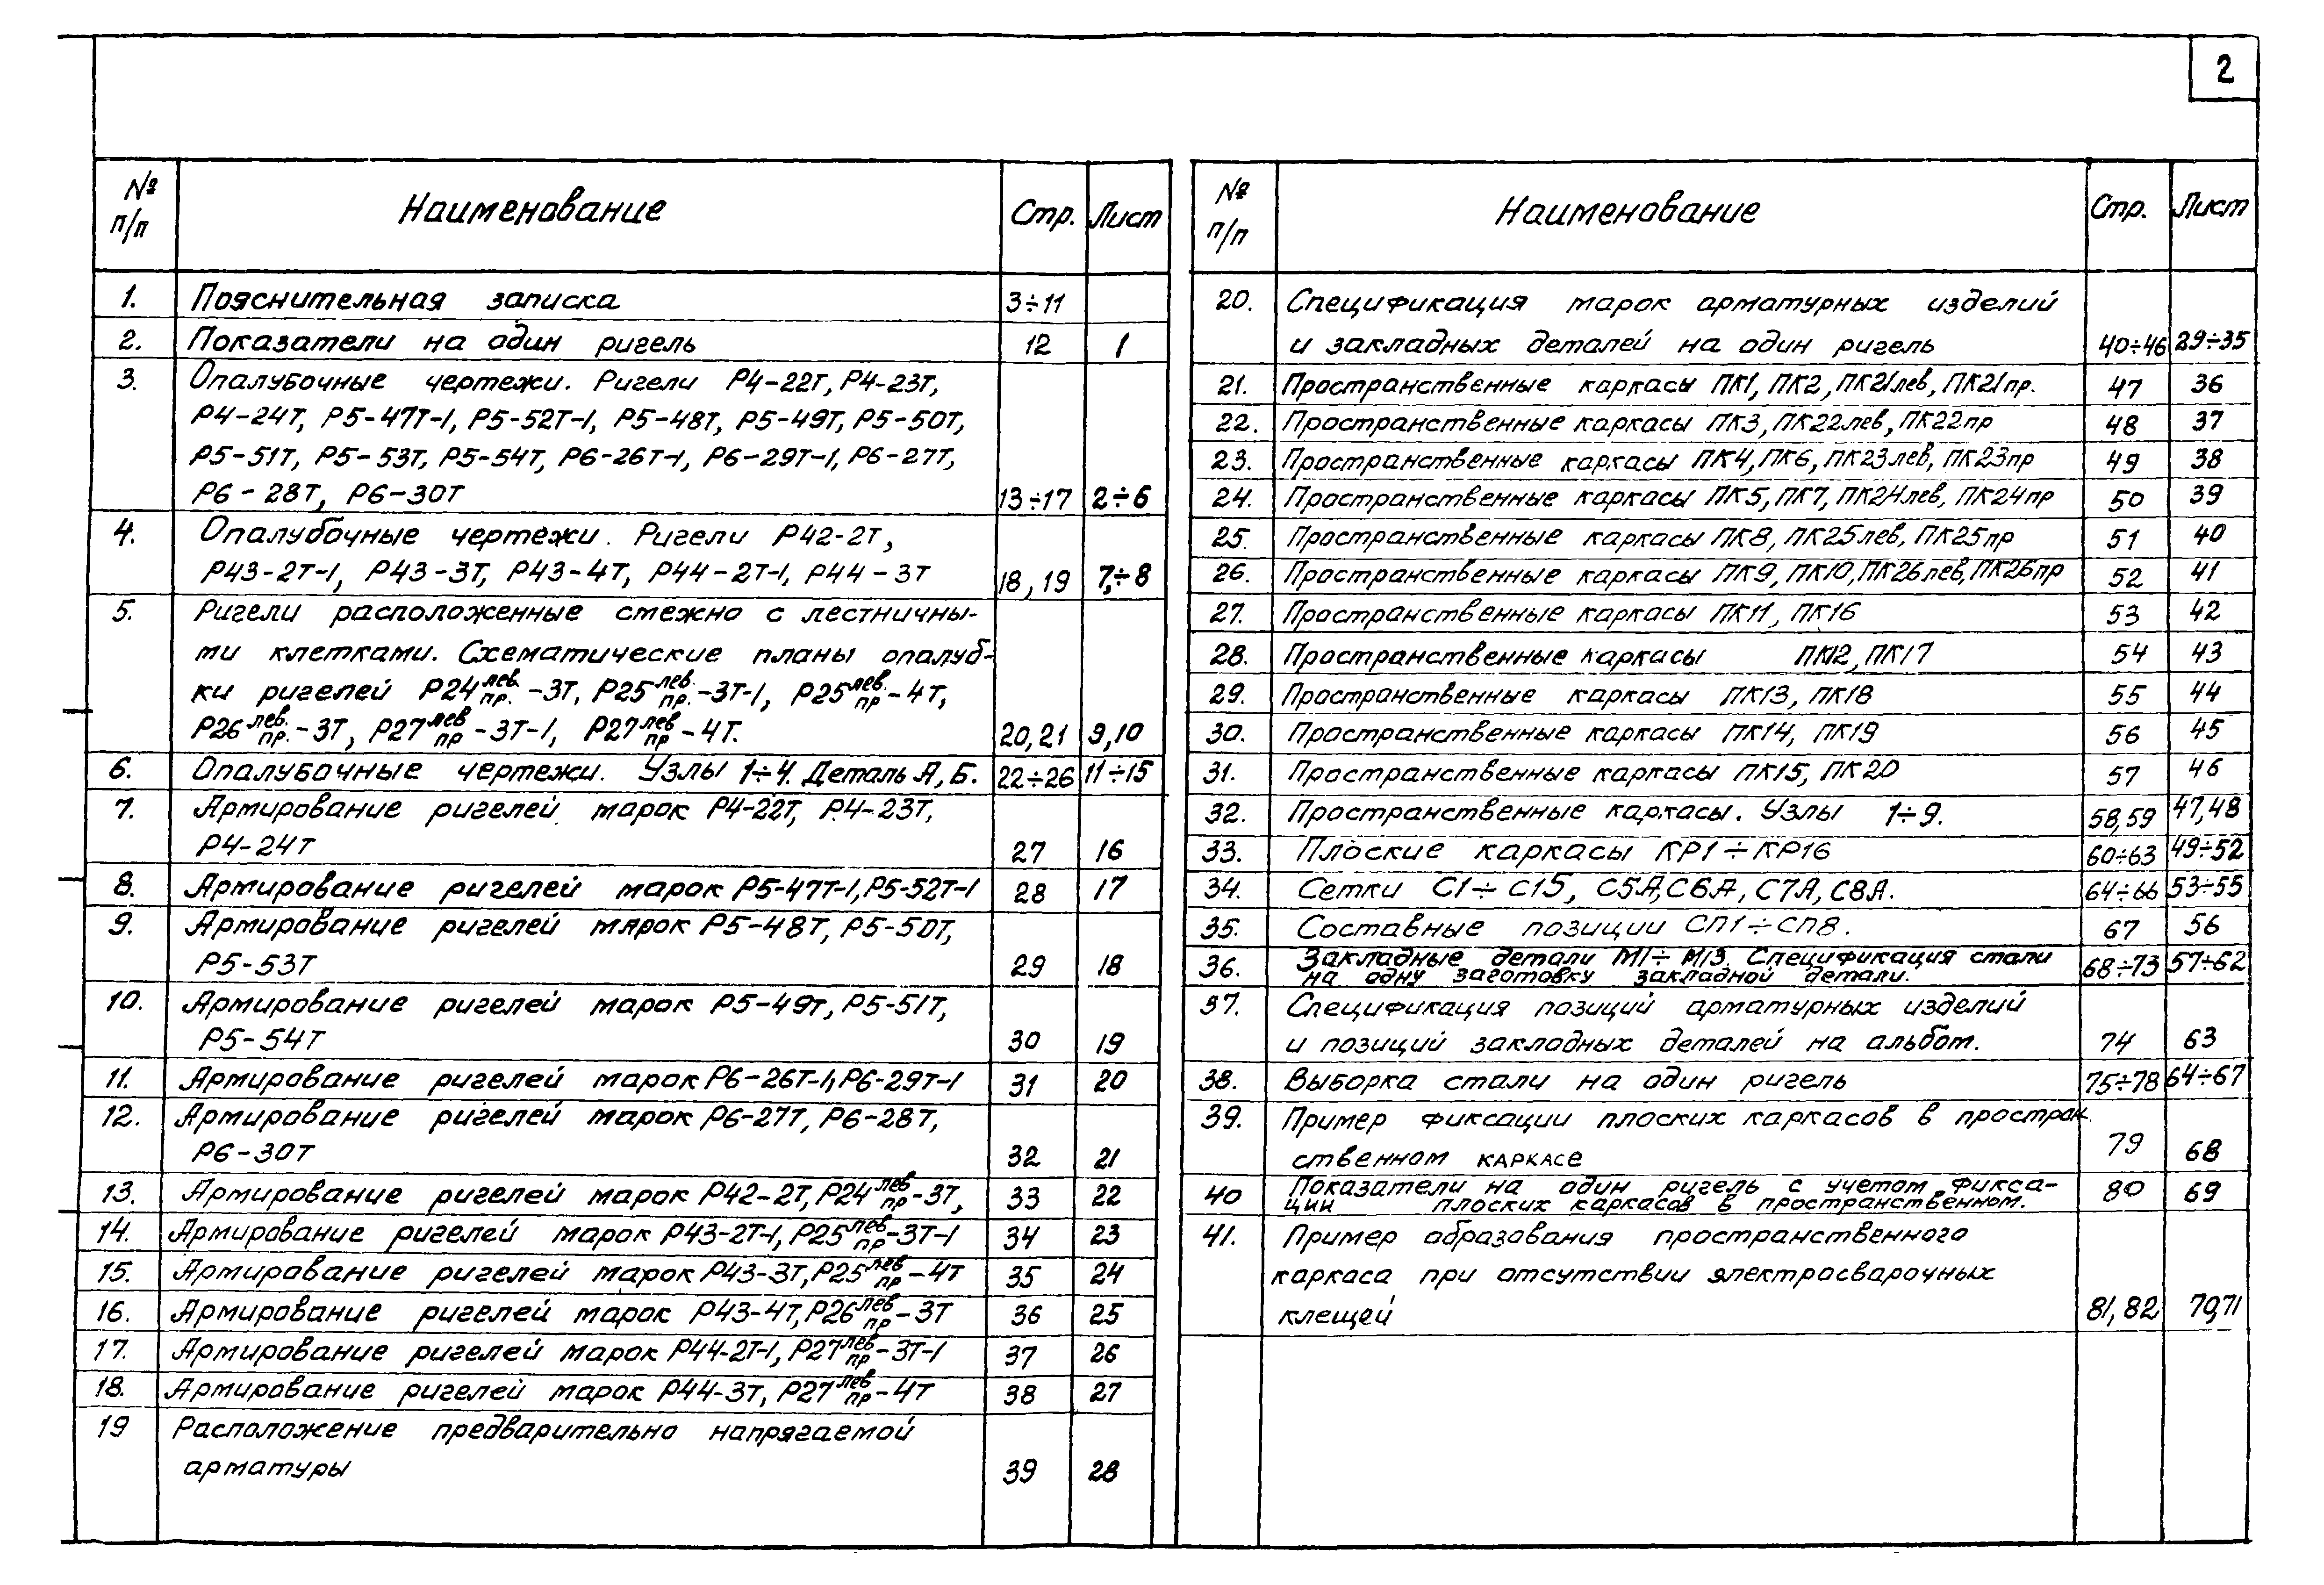 2
№ п/п Наименование Стр. Лист
1. Пояснительная записка 3÷11
2. Показатели на один ригель 12 1
3. Опалубочные чертежи. Ригели Р4-22Т, Р4-23Т,
Р4-24Т, Р5-47Т-1, Р5-52Т-1, Р5-48Т, Р5-49Т, Р5-50Т,
Р5-51Т, Р5-53Т, Р5-54Т, Р6-26Т-1, Р6-29Т-1, Р6-27Т,
Р6-28Т, Р6-30Т 13÷17 2÷6
4. Опалубочные чертежи. Ригели Р42-2Т,
Р43-2Т-1, Р43-3Т, Р43-4Т, Р44-2Т-1, Р44-3Т 18, 19 7,÷8
5. Ригели расположенные стежно с лестничны-
ми клетками. Схематические планы опалуб-
ки ригелей Р24лев.пр.-3Т, Р25лев.пр.-3Т-1, Р25лев.пр-4Т,
Р26лев.пр.-3Т, Р27левпр-3Т-1, Р27левпр-4Т. 20,21 9,10
6. Опалубочные чертежи. Узлы 1÷4. Деталь А, Б. 22÷26 11÷15
7. Армирование ригелей марок Р4-22Т, Р4-23Т,
Р4-24Т 27 16
8. Армирование ригелей марок Р5-47Т-1, Р5-52Т-1 28 17
9. Армирование ригелей мярок Р5-48Т, Р5-50Т,
Р5-53Т 29 18
10. Армирование ригелей марок Р5-49Т, Р5-51Т,
Р5-54Т 30 19
11. Армирование ригелей марок Р6-26Т-1, Р6-29Т-1 31 20
12. Армирование ригелей марок Р6-27Т, Р6-28Т,
Р6-30Т 32 21
13. Армирование ригелей марок Р42-2Т, Р24левпр-3Т, 33 22
14. Армирование ригелей марок Р43-2Т-1, Р25левпр-3Т-1 34 23
15. Армирование ригелей марок Р43-3Т, Р25левпр-4Т 35 24
16. Армирование ригелей марок Р43-4Т, Р26левпр-3Т 36 25
17. Армирование ригелей марок Р44-2Т-1, Р27левпр-3Т-1 37 26
18. Армирование ригелей марок Р44-3Т, Р27левпр-4Т 38 27
19 Расположение предварительно напрягаемой
арматуры 39 28
№ п/п Наименование Стр. Лист
20. Спецификация марок арматурных изделий
и закладных деталей на один ригель 40÷46 29÷35
21. Пространственные каркасы ПК1, ПК2, ПК21лев, ПК21пр. 47 36
22. Пространственные каркасы ПК3, ПК22лев, ПК22пр 48 37
23. Пространственные каркасы ПК4, ПК6, ПК23лев, ПК23пр 49 38
24. Пространственные каркасы ПК5, ПК7, ПК24лев, ПК24пр 50 39
25. Пространственные каркасы ПК8, ПК25лев, ПК25пр 51 40
26. Пространственные каркасы ПК9, ПК10, ПК26лев, ПК26пр 52 41
27. Пространственные каркасы ПК11, ПК16 53 42
28. Пространственные каркасы ПК12, ПК17 54 43
29. Пространственные каркасы ПК13, ПК18 55 44
30. Пространственные каркасы ПК14, ПК19 56 45
31. Пространственные каркасы ПК15, ПК20 57 46
32. Пространственные каркасы. Узлы 1÷9. 58,59 47,48
33. Плоские каркасы КР1÷КР16 60÷63 49÷52
34. Сетки С1÷С15, С5А, С6А, С7А, С8А. 64÷66 53÷55
35. Составные позиции СП1÷СП8. 67 56
36. Закладные детали М1÷М13. Спецификация стали
на одну заготовку закладной детали. 68÷73 57÷62
37. Спецификация позиций арматурных изделий
и позиций закладных деталей на альбом. 74 63
38. Выборка стали на один ригель 75÷78 64÷67
39. Пример фиксации плоских каркасов в простран.
ственном каркасе 79 68
40 Показатели на один ригель с учетом фикса-
ции плоских каркасов в пространственном. 80 69
41. Пример образования пространственного
каркаса при отсутствии электросварочных
клещей 81, 82 70,71